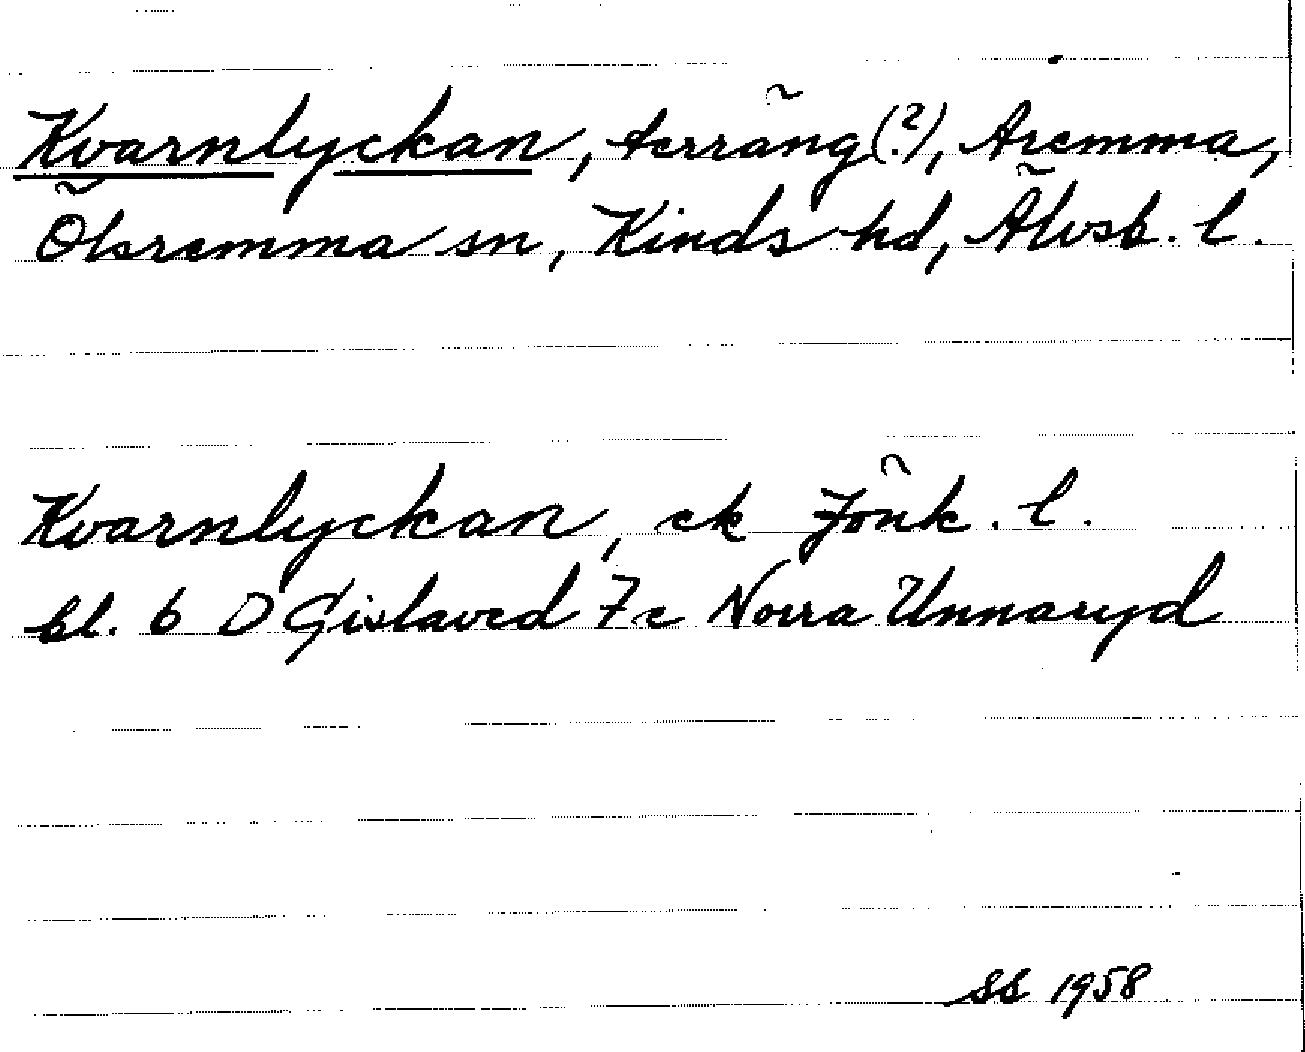 Kvarnlyckan, terräng(?), Aremma,
Ölsremma sn, Kinds hd, Älvsb. l.
Kvarnlyckan, ek Jönk. l.
bl. 6 D Gislaved 7 c Norra Unnaryd
SS 1958